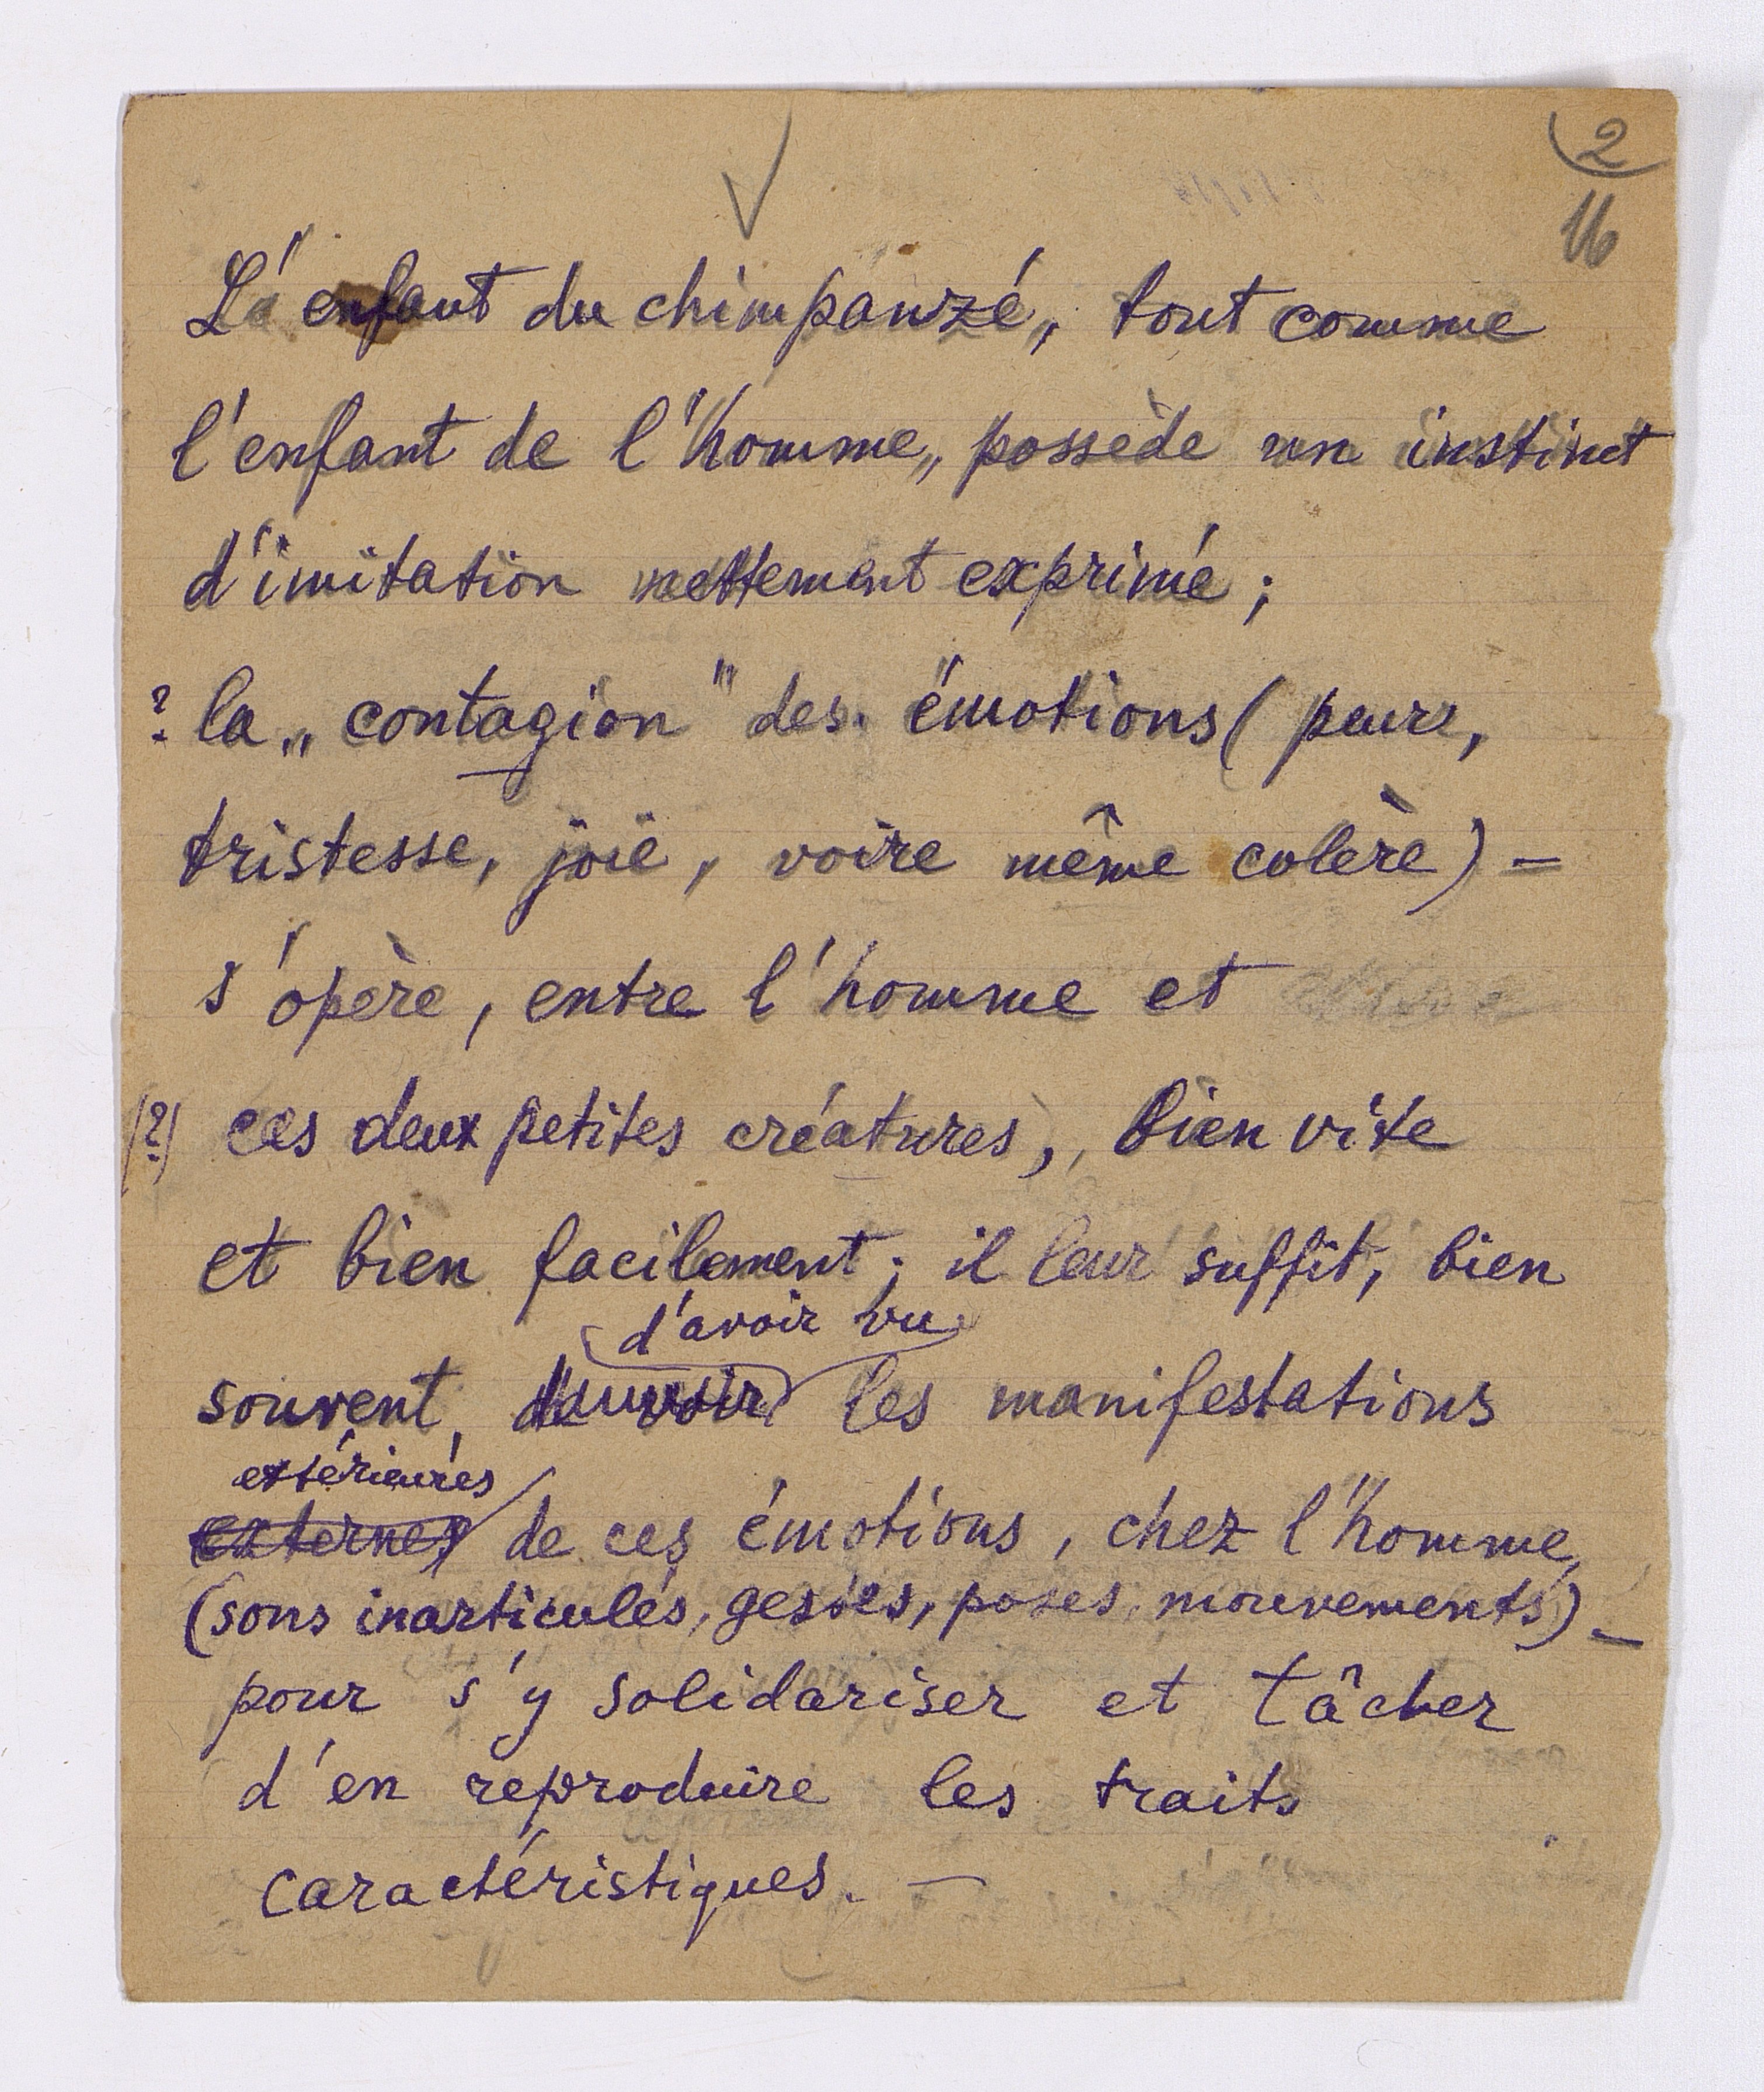 2
16
L'enfant du chimpanzé, tout comme
l'enfant de l'homme, possède un instinct
d'imitation nettement exprimé ;
? la „contagion" des émotions (peur,
tristesse, joie, voire même colère) –
s'opère, entre l'homme et
(?) ces deux petites créatures, bien vite
et bien facilement ; il leur suffit, bien
d'avoir vu
souvent, les manifestations
extérieures
externes de ces émotions, chez l'homme,
(sons inarticulés, gestes, poses, mouvements) –
pour s'y solidariser et tâcher
d'en reproduire les traits
caractéristiques. –